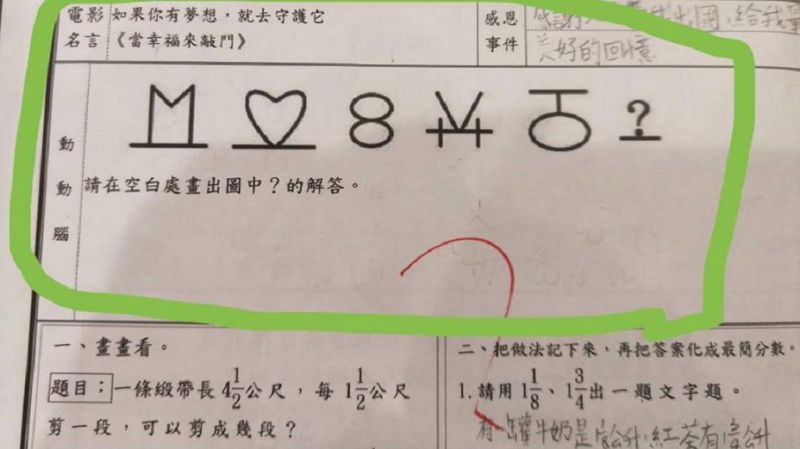 電影 如果你有夢想,就去守護它
名言 《當幸福來敲門》
感恩
事件
美好的回憶
8
?
動動腦
請在空白處畫出圖中?的解答。
一、畫畫看。
題目:一條緞帶長4 1/2公尺,每1 1/2公尺
剪一段,可以剪成幾段?
二、把做法記下來,再把答案化成最簡分數。
1.請用1 1/8、1 3/4出一題文字題。